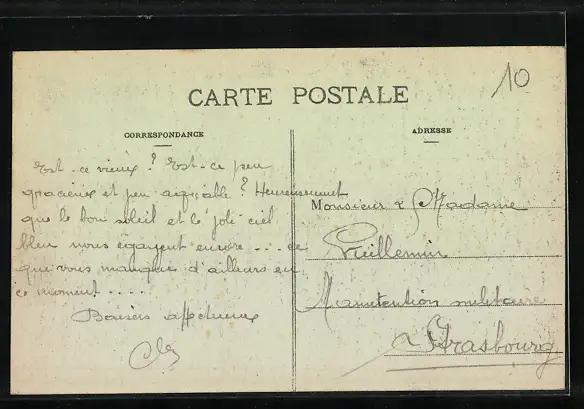 10
CARTE POSTALE
CORRESPONDANCE
Est-ce vieux ? Est-ce peu
gracieux et peu agréable ? Heureusement
que le bon soleil et le joli ciel
bleu nous égayent encore . . . ce
qui vous manque d'ailleurs en
ce moment . . . .
Baisers affectueux
ADRESSE
Monsieur & Madame
Vuillemin
Manutention militaire
Strasbourg